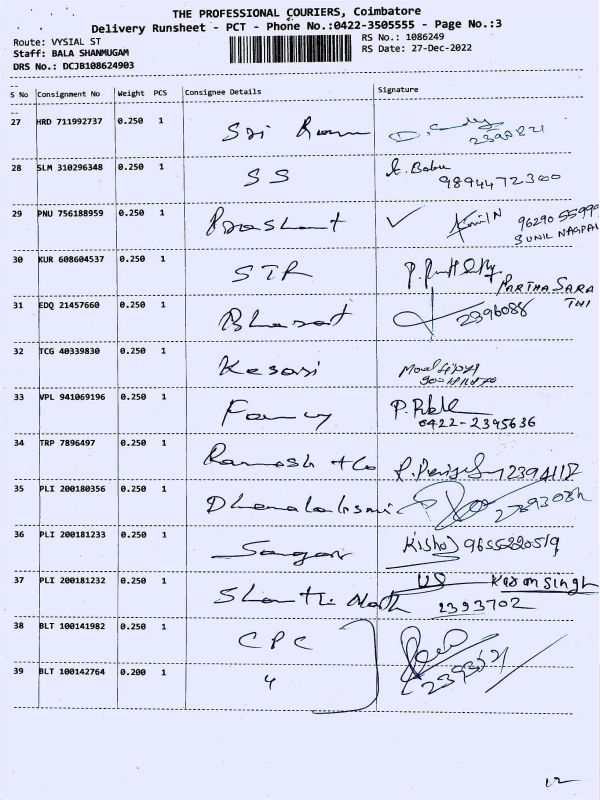 THE PROFESSIONAL COURIERS, Coimbatore
Delivery Runsheet - PCT - Phone No.:0422-3505555 - Page No.:3
Route: VYSIAL ST
RS No.: 1086249
Staff: BALA SHANMUGAM
RS Date: 27-Dec-2022
DRS No.: DCJB108624903
S No Consignment No Weight PCS Consignee Details Signature
27 HRD 711992737 0.250 1 Sri Ram
28 SLM 310296348 0.250 1 SS K. Babu
9894472300
29 PNU 756188959 0.250 1 Prashant ✓ 9629055999
SUNIL NAGPAL
30 KUR 608604537 0.250 1 STR
PARTHA SARA
THI
31 EDQ 21457660 0.250 1 Bharat 2396088
32 TCG 40339830 0.250 1 Kesari
33 VPL 941069196 0.250 1 Fancy
0422-2395636
34 TRP 7896497 0.250 1 Ramesh + Co
35 PLI 200180356 0.250 1 Dhanalakshmi
36 PLI 200181233 0.250 1 Sagar Kishor 9655820519
37 PLI 200181232 0.250 1 Shanthi Nath Karan Singh
2393702
38 BLT 100141982 0.250 1 CPC
39 BLT 100142764 0.200 1 4
12